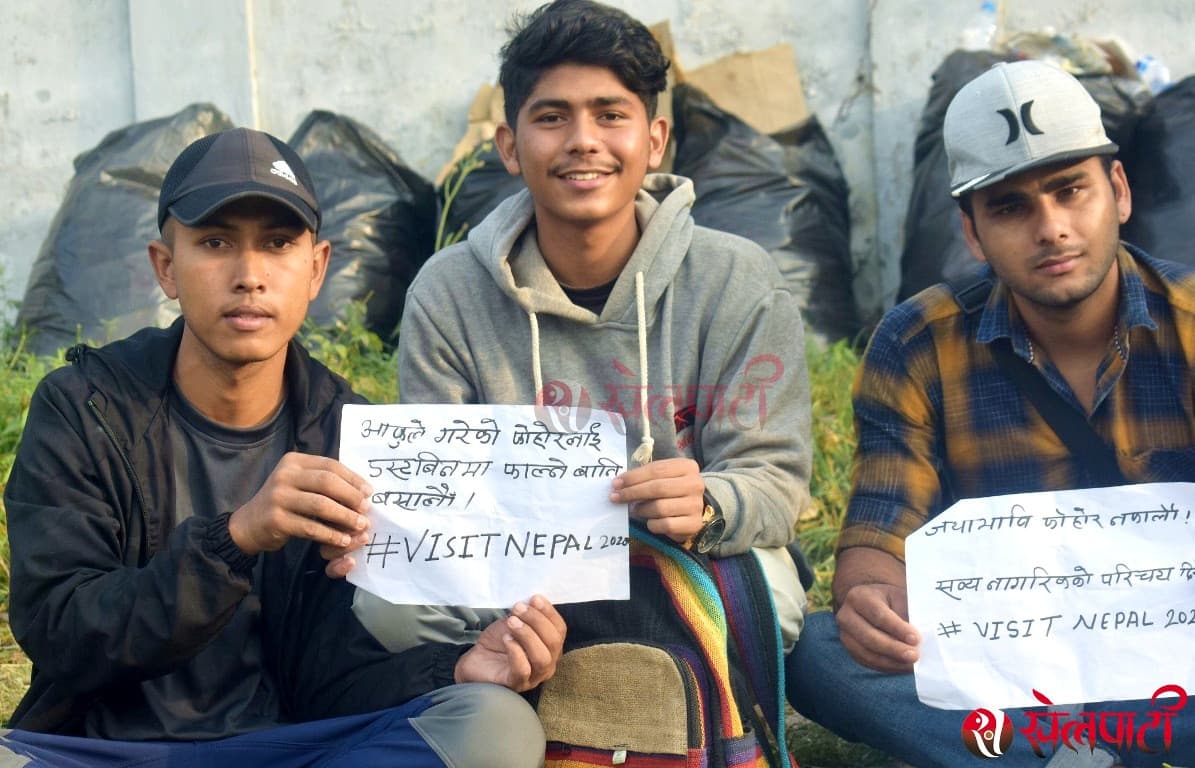 आफुले गरेको फोहोरलाई
डस्टबिनमा फाल्ने बानि
बसालौ ।
#VISIT NEPAL 2020
जथाभावि फोहोर नफालौ !
सव्य नागरिकको परिचय
# VISIT NEPAL 202
खेलपाटी
खेलपाटी